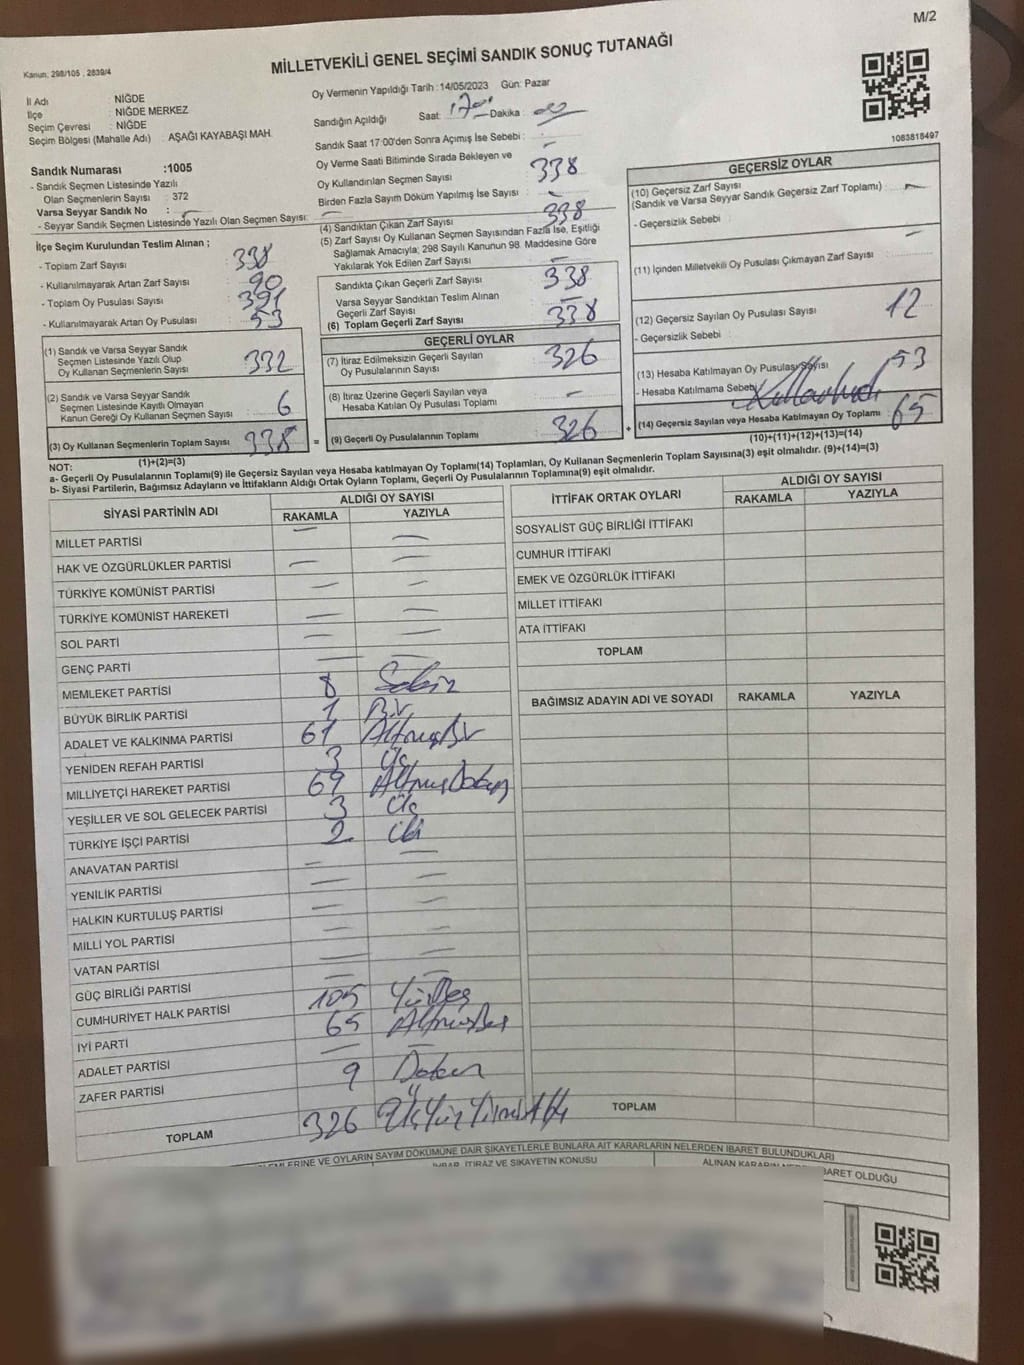 M/2
Kanun: 298/105 , 2839/4
MİLLETVEKİLİ GENEL SEÇİMİ SANDIK SONUÇ TUTANAĞI
İl Adı : NİĞDE
İlçe : NİĞDE MERKEZ
Seçim Çevresi : NİĞDE
Seçim Bölgesi (Mahalle Adı) : AŞAĞI KAYABAŞI MAH.
Sandık Numarası :1005
- Sandık Seçmen Listesinde Yazılı
Olan Seçmenlerin Sayısı : 372
Varsa Seyyar Sandık No :
- Seyyar Sandık Seçmen Listesinde Yazılı Olan Seçmen Sayısı:
İlçe Seçim Kurulundan Teslim Alınan ;
- Toplam Zarf Sayısı : 338
- Kullanılmayarak Artan Zarf Sayısı : 90
- Toplam Oy Pusulası Sayısı : 391
- Kullanılmayarak Artan Oy Pusulası : 53
(1) Sandık ve Varsa Seyyar Sandık
Seçmen Listesinde Yazılı Olup
Oy Kullanan Seçmenlerin Sayısı : 332
(2) Sandık ve Varsa Seyyar Sandık
Seçmen Listesinde Kayıtlı Olmayan
Kanun Gereği Oy Kullanan Seçmen Sayısı : 6
(3) Oy Kullanan Seçmenlerin Toplam Sayısı : 338 =
(1)+(2)=(3)
Oy Vermenin Yapıldığı Tarih :14/05/2023 Gün: Pazar
Sandığın Açıldığı Saat: 17.00 Dakika : 00
Sandık Saat 17:00'den Sonra Açımış İse Sebebi :
Oy Verme Saati Bitiminde Sırada Bekleyen ve
Oy Kullandırılan Seçmen Sayısı : 338
Birden Fazla Sayım Döküm Yapılmış İse Sayısı :
(4) Sandıktan Çıkan Zarf Sayısı : 338
(5) Zarf Sayısı Oy Kullanan Seçmen Sayısından Fazla İse, Eşitliği
Sağlamak Amacıyla; 298 Sayılı Kanunun 98. Maddesine Göre
Yakılarak Yok Edilen Zarf Sayısı :
Sandıkta Çıkan Geçerli Zarf Sayısı : 338
Varsa Seyyar Sandıktan Teslim Alınan
Geçerli Zarf Sayısı :
(6) Toplam Geçerli Zarf Sayısı : 338
GEÇERLİ OYLAR
(7) İtiraz Edilmeksizin Geçerli Sayılan
Oy Pusulalarının Sayısı : 326
(8) İtiraz Üzerine Geçerli Sayılan veya
Hesaba Katılan Oy Pusulası Toplamı :
(9) Geçerli Oy Pusulalarının Toplamı : 326 +
1083818497
GEÇERSİZ OYLAR
(10) Geçersiz Zarf Sayısı
(Sandık ve Varsa Seyyar Sandık Geçersiz Zarf Toplamı) :
- Geçersizlik Sebebi :
(11) İçinden Milletvekili Oy Pusulası Çıkmayan Zarf Sayısı :
(12) Geçersiz Sayılan Oy Pusulası Sayısı : 12
- Geçersizlik Sebebi :
(13) Hesaba Katılmayan Oy Pusulası Sayısı : 53
- Hesaba Katılmama Sebebi
(14) Geçersiz Sayılan veya Hesaba Katılmayan Oy Toplamı : 65
(10)+(11)+(12)+(13)=(14)
NOT:
a- Geçerli Oy Pusulalarının Toplamı(9) ile Geçersiz Sayılan veya Hesaba katılmayan Oy Toplamı(14) Toplamları, Oy Kullanan Seçmenlerin Toplam Sayısına(3) eşit olmalıdır. (9)+(14)=(3)
b- Siyasi Partilerin, Bağımsız Adayların ve İttifakların Aldığı Ortak Oyların Toplamı, Geçerli Oy Pusulalarının Toplamına(9) eşit olmalıdır.
SİYASİ PARTİNİN ADI ALDIĞI OY SAYISI
RAKAMLA YAZIYLA
MİLLET PARTİSİ
HAK VE ÖZGÜRLÜKLER PARTİSİ
TÜRKİYE KOMÜNİST PARTİSİ
TÜRKİYE KOMÜNİST HAREKETİ
SOL PARTİ
GENÇ PARTİ
MEMLEKET PARTİSİ 8 Sekiz
BÜYÜK BİRLİK PARTİSİ 1 Bir
ADALET VE KALKINMA PARTİSİ 61 AltmışBir
YENİDEN REFAH PARTİSİ 3 Üç
MİLLİYETÇİ HAREKET PARTİSİ 69 AltmışDokuz
YEŞİLLER VE SOL GELECEK PARTİSİ 3 Üç
TÜRKİYE İŞÇİ PARTİSİ 2 iki
ANAVATAN PARTİSİ
YENİLİK PARTİSİ
HALKIN KURTULUŞ PARTİSİ
MİLLİ YOL PARTİSİ
VATAN PARTİSİ
GÜÇ BİRLİĞİ PARTİSİ
CUMHURİYET HALK PARTİSİ 105 YüzBeş
İYİ PARTİ 65 AltmışBeş
ADALET PARTİSİ
ZAFER PARTİSİ 9 Dokuz
TOPLAM 326 ÜçYüzYirmiAltı
İTTİFAK ORTAK OYLARI ALDIĞI OY SAYISI
RAKAMLA YAZIYLA
SOSYALİST GÜÇ BİRLİĞİ İTTİFAKI
CUMHUR İTTİFAKI
EMEK VE ÖZGÜRLÜK İTTİFAKI
MİLLET İTTİFAKI
ATA İTTİFAKI
TOPLAM
BAĞIMSIZ ADAYIN ADI VE SOYADI RAKAMLA YAZIYLA
TOPLAM
VE OYLARIN SAYIM DÖKÜMÜNE DAİR ŞİKAYETLERLE BUNLARA AİT KARARLARIN NELERDEN İBARET BULUNDUKLARI
İTİRAZ VE ŞİKAYETİN KONUSU